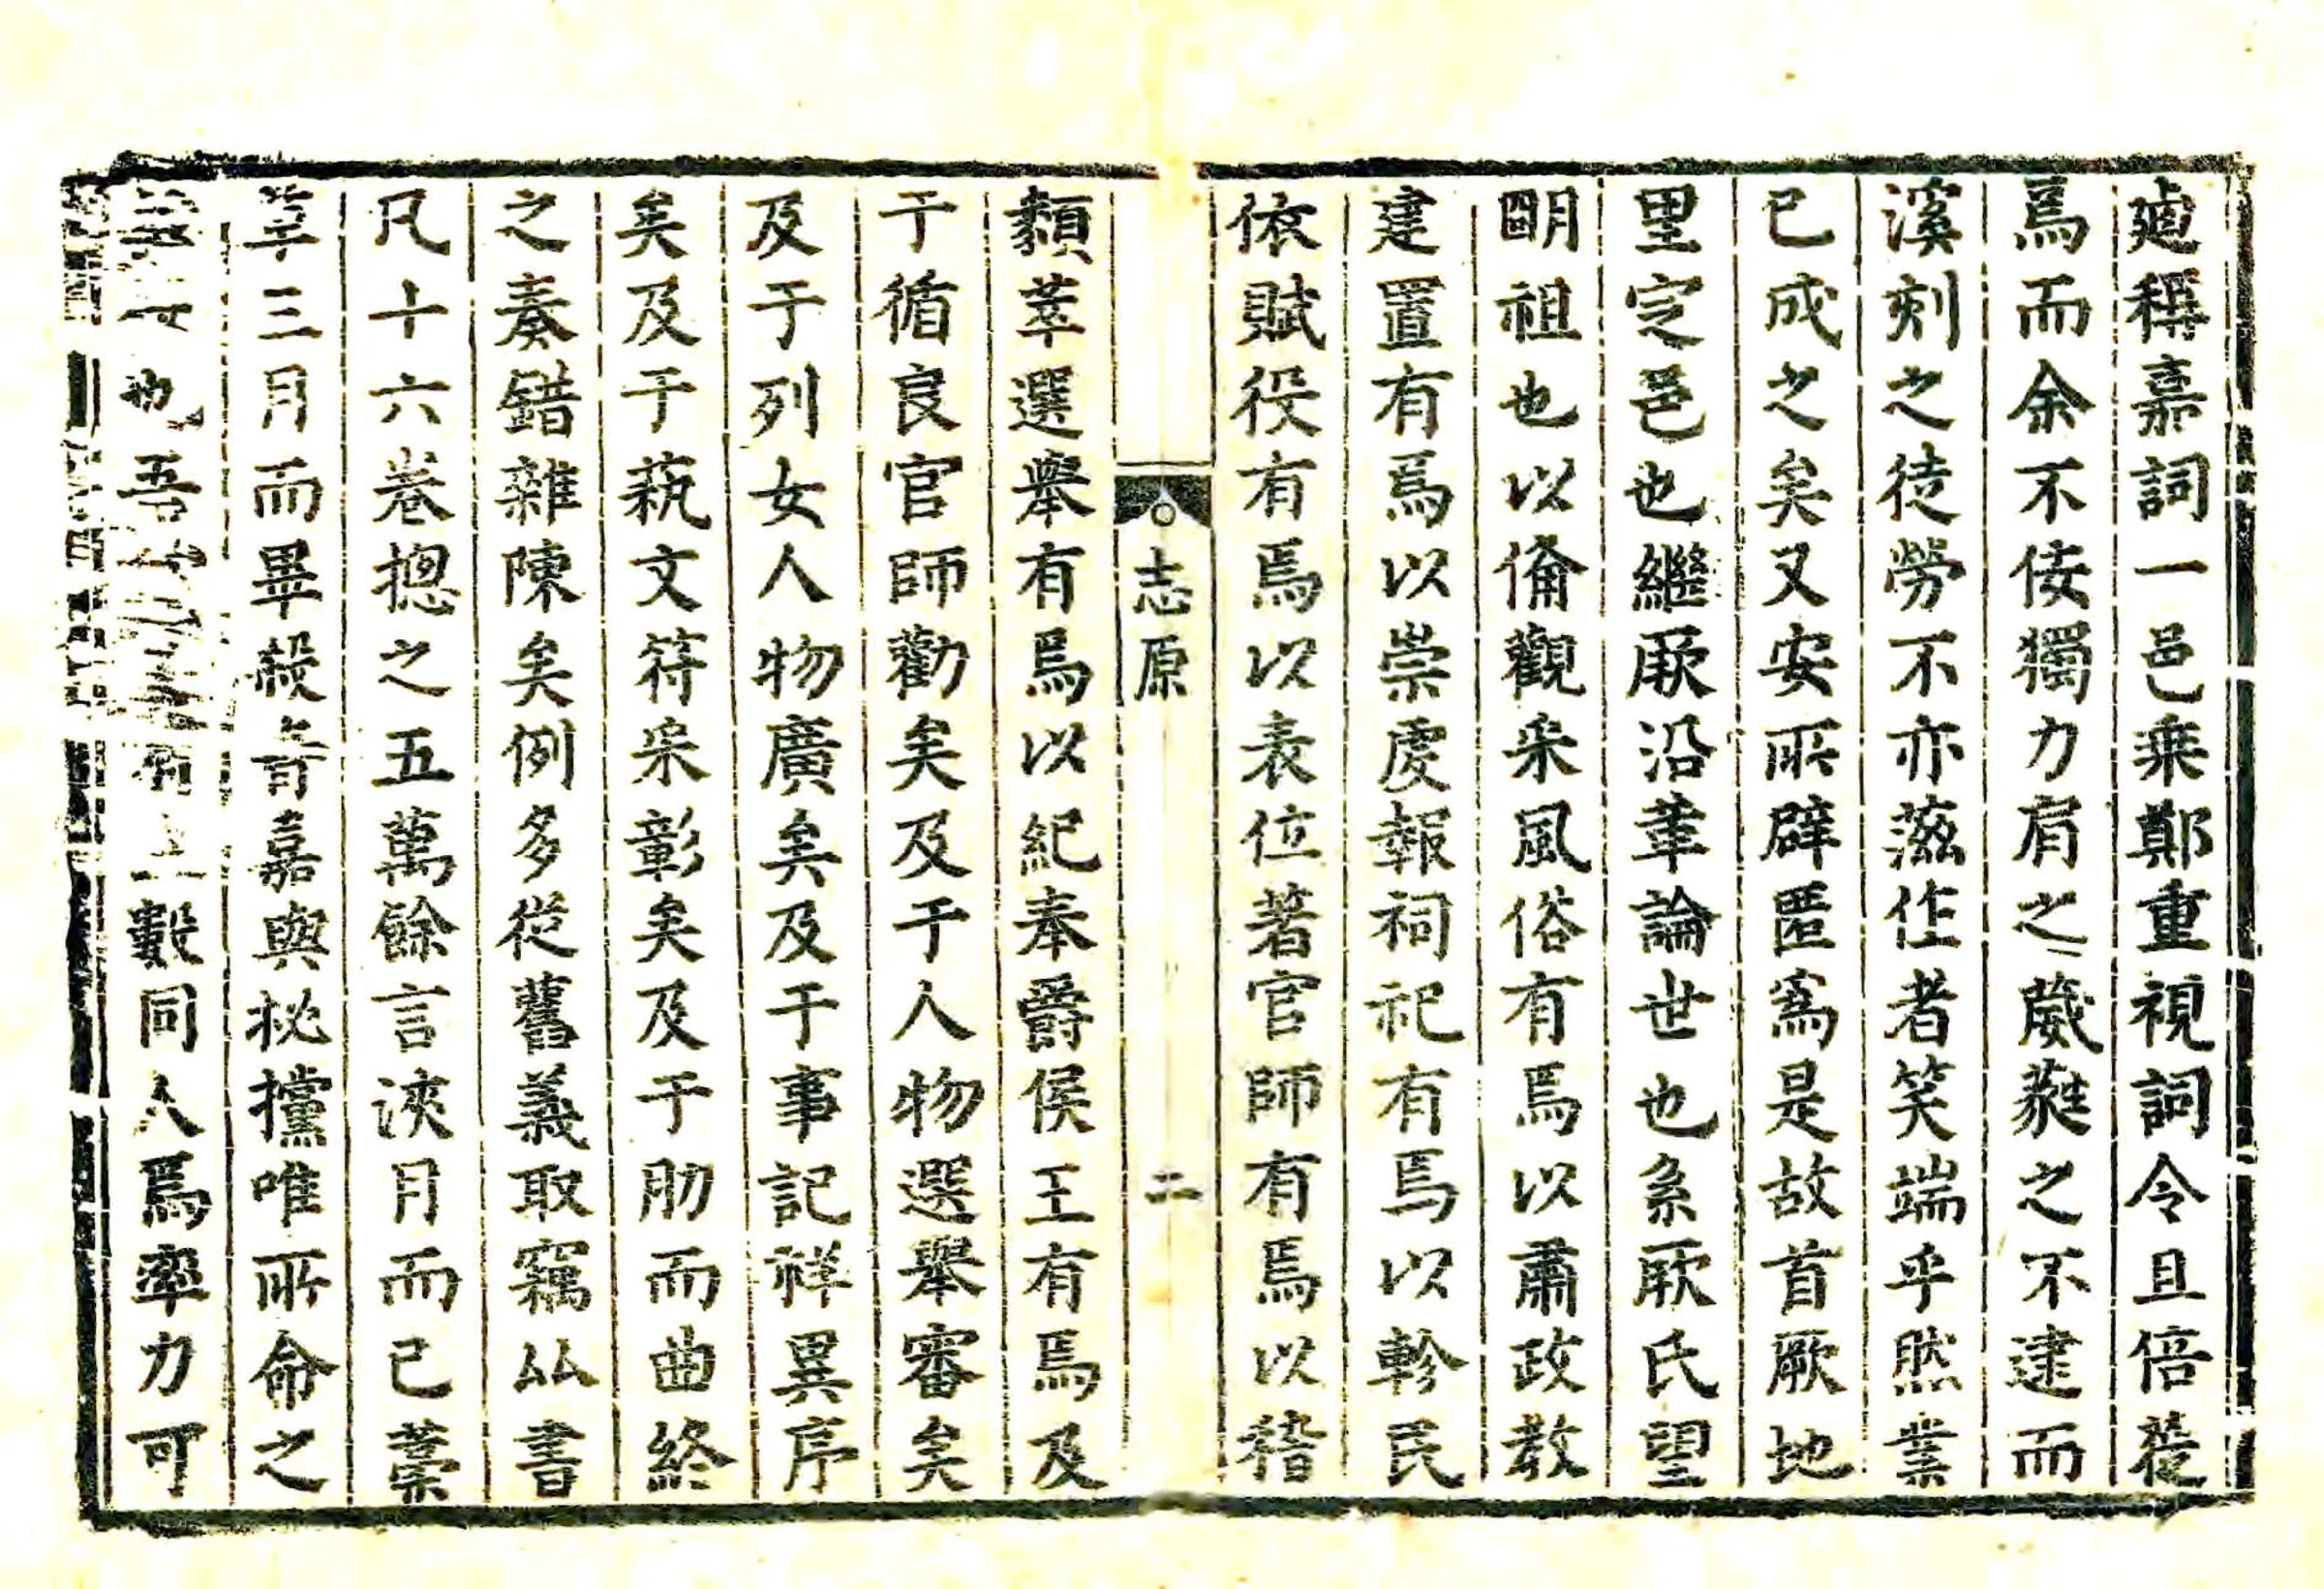 逌稱嘉詞一邑乘鄭重視詞令且倍蓰
焉而余不佞獨力肩之葳蕤之不逮而
溪刻之徒勞不亦滋作者笑端乎然業
已成之矣又安所辟匿爲是故首厥地
里定邑也繼厥沿革論世也系厥氏望
朙祖也以俻觀采風俗有焉以肅政教
建置有焉以崇虔報祠祀有焉以軫民
依賦役有焉以表位著官師有焉以稽
志原
二
類萃選舉有焉以紀奉爵侯王有焉及
于循良官師勸矣及于人物選舉審矣
及于列女人物廣矣及于事記祥異序
矣及于藝文符采彰矣及于肋而曲終
之奏錯雜陳矣例多從舊義取竊比書
凡十六卷摠之五萬餘言浹月而已藁
草三月而畢殺青嘉與秘攩唯所命之
也吾數同人焉率力可